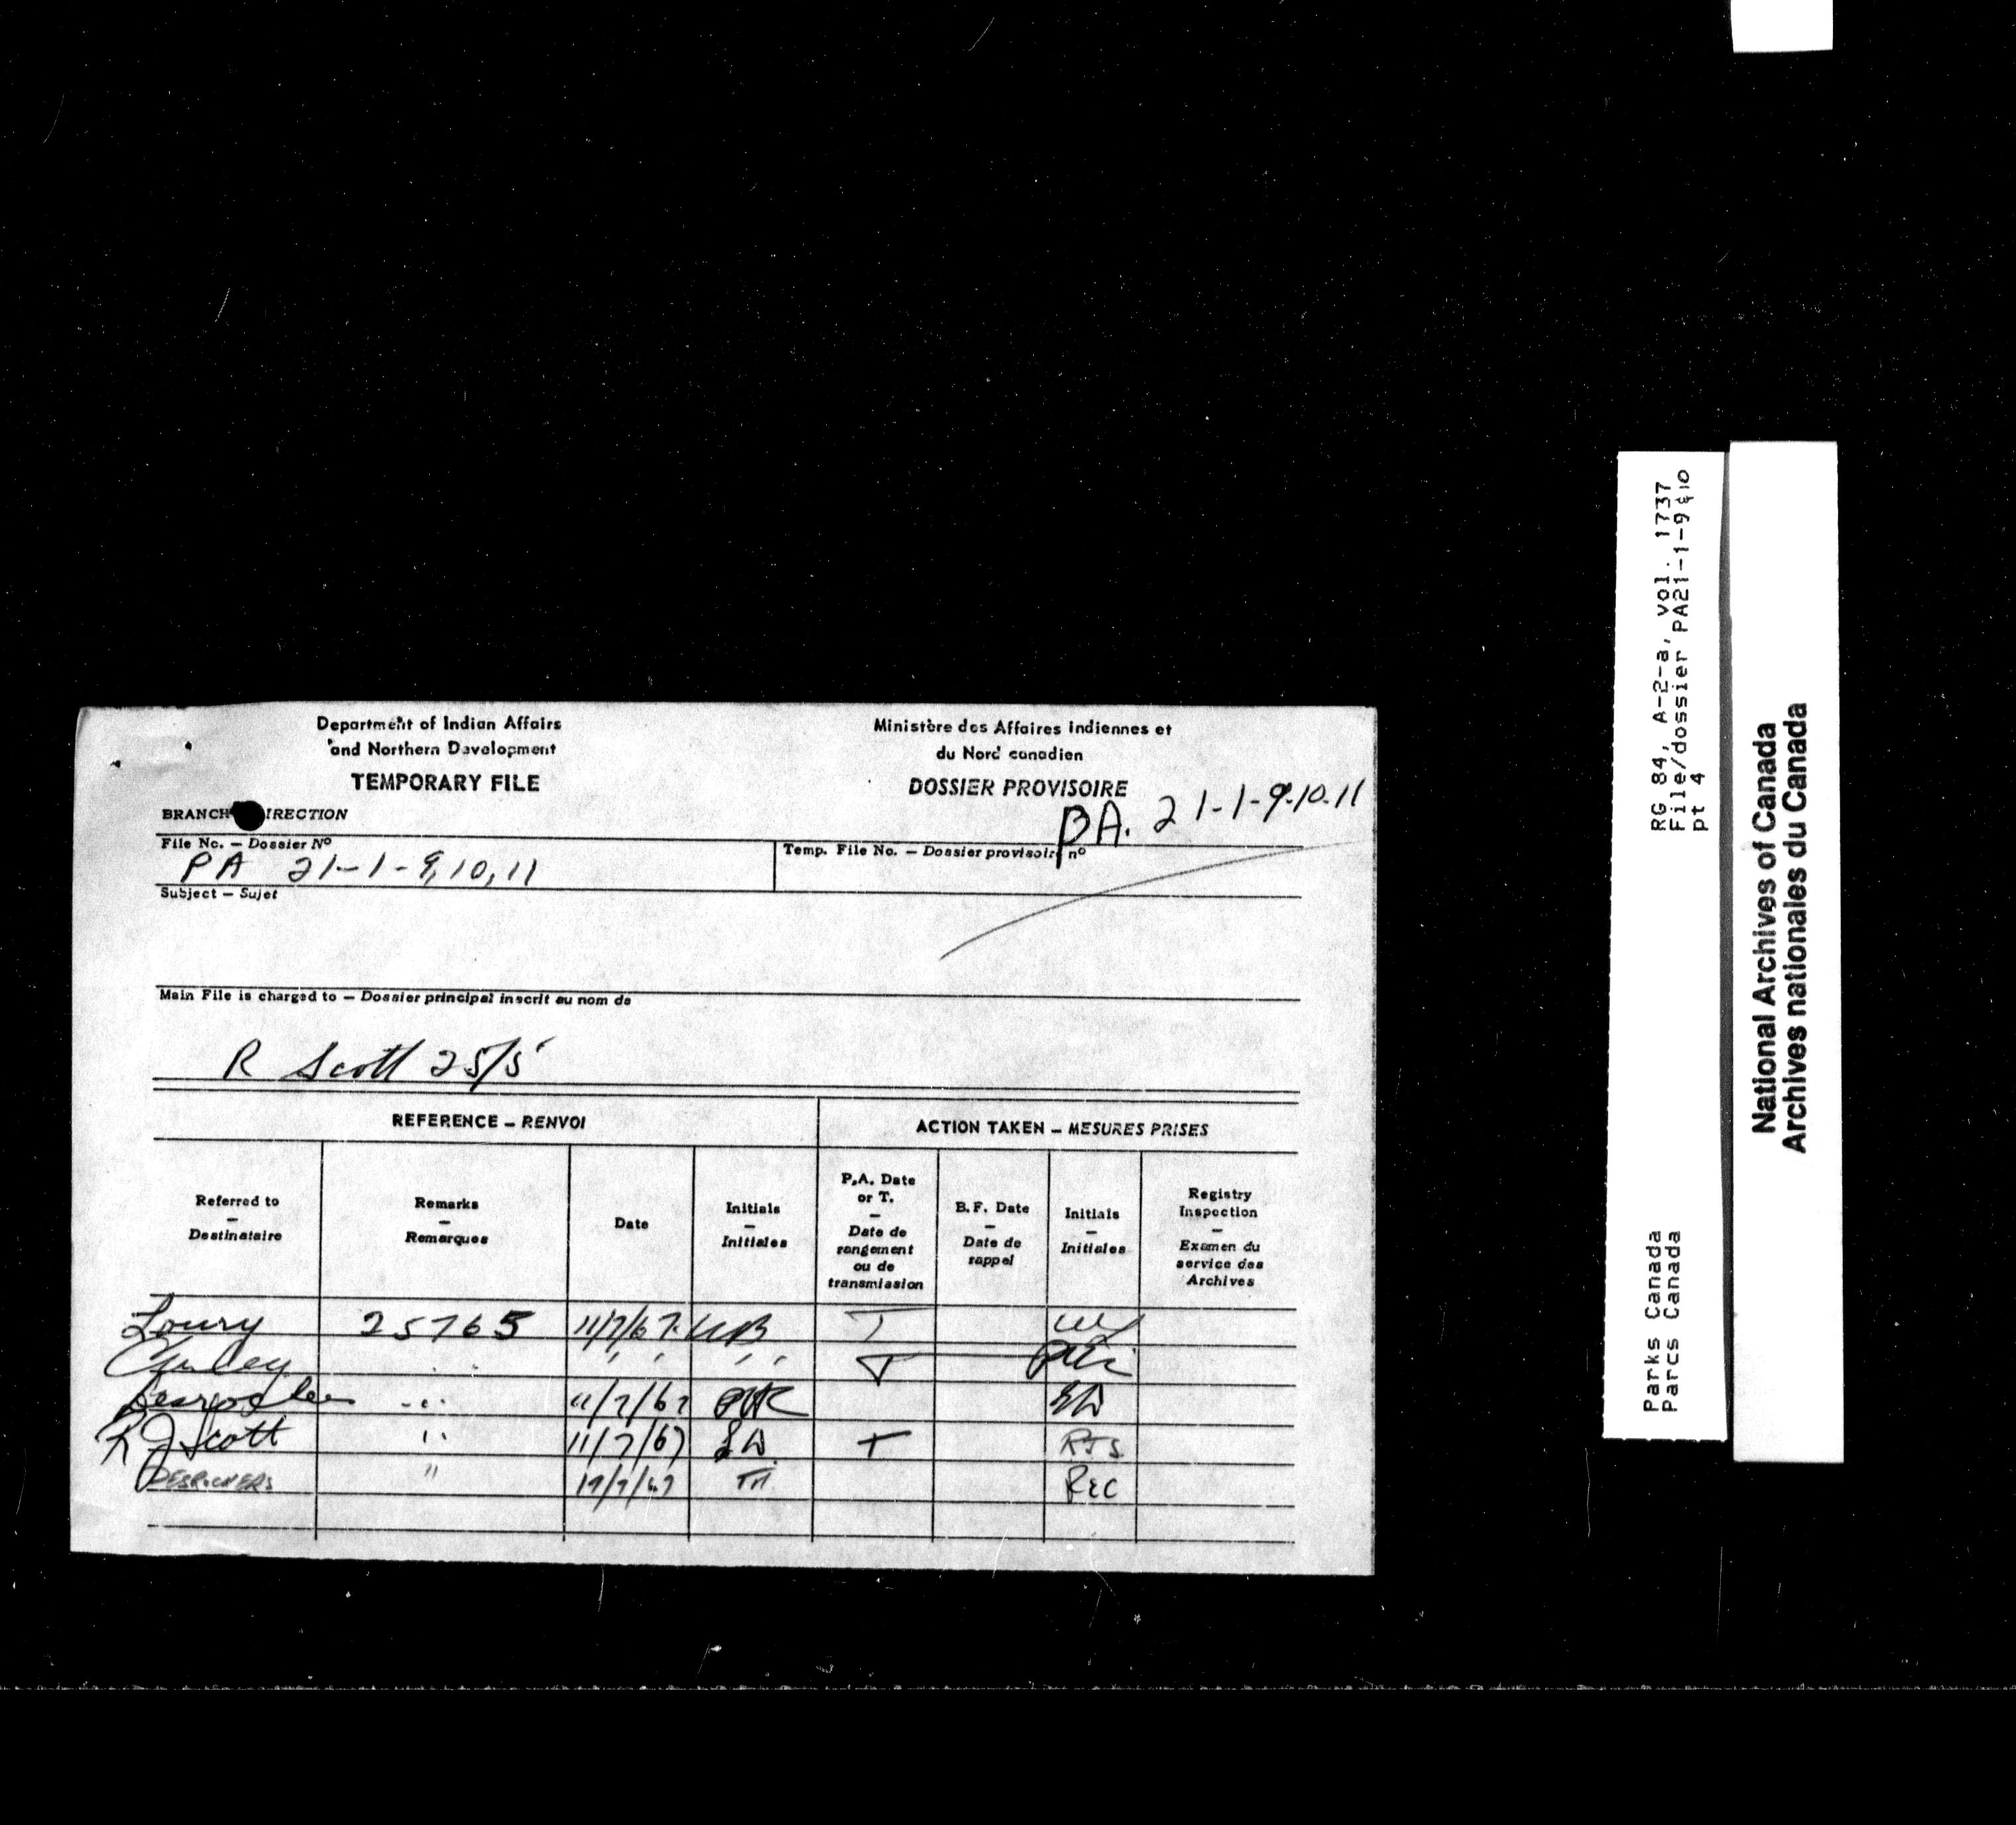 Department of Indian Affairs
and Northern Development
TEMPORARY FILE
Ministère des Affaires indiennes et
du Nord canadien
DOSSIER PROVISOIRE
PA. 21-1-9-10-11
BRANCH DIRECTION
File No. — Dossier Nº
PA 21-1-9,10,11
Temp. File No. — Dossier provisoire nº
Subject — Sujet
Main File is charged to — Dossier principal inscrit au nom de
R Scott 25/5
REFERENCE — RENVOI
ACTION TAKEN — MESURES PRISES
Referred to
—
Destinataire
Remarks
—
Remarques
Date
Initials
—
Initiales
P.A. Date
or T.
—
Date de
rangement
ou de
transmission
B.F. Date
—
Date de
rappel
Initials
—
Initiales
Registry
Inspection
—
Examen du
service des
Archives
Loury 25765 11/7/67 T
" " T
11/7/67
R J Scott " 11/7/67 T RJS
DESROCHERS " 19/7/67 TH REC
RG 84, A-2-a, vol. 1737
File/dossier PA21-1-9 & 10
pt 4
Parks Canada
Parcs Canada
National Archives of Canada
Archives nationales du Canada